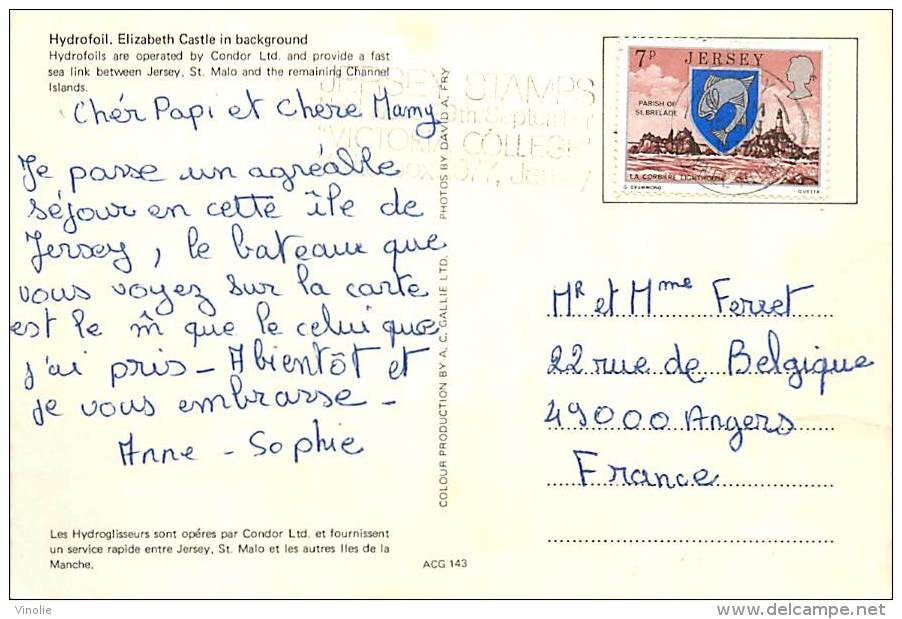 Hydrofoil. Elizabeth Castle in background
Hydrofoils are operated by Condor Ltd. and provide a fast
sea link between Jersey, St. Malo and the remaining Channel
Islands.
Chér Papi et Chère Mamy
Je passe un agréable
séjour en cette île de
Jersey, le bateau que
vous voyez sur la carte
est le m̂ que le celui que
j'ai pris – Abientôt et
je vous embrasse –
Anne - Sophie
Les Hydroglisseurs sont opéres par Condor Ltd. et fournissent
un service rapide entre Jersey, St. Malo et les autres Iles de la
Manche.
ACG 143
COLOUR PRODUCTION BY A. C. GALLIE LTD. PHOTOS BY DAVID A. FRY
JERSEY STAMPS
8th September
"VICTORIA COLLEGE"
Jersey
7p JERSEY
PARISH OF
ST. BRELADE
LA CORBIERE LIGHTHOUSE
G. DRUMMOND
QUESTA
MR et Mme Ferret
22 rue de Belgique
49000 Angers
France
Vinolie
http://www.delcampe.net